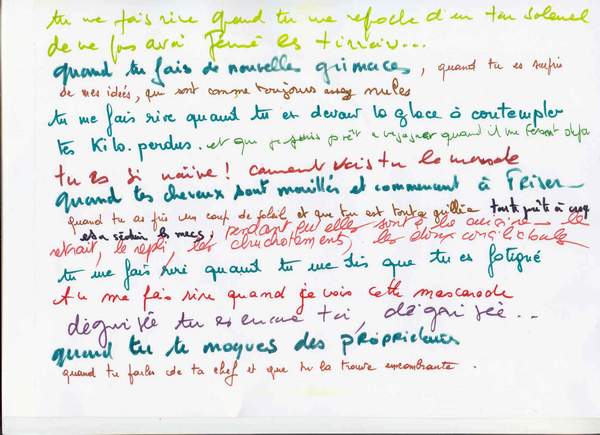 tu me fais rire quand tu me reproche d'un ton solennel
de ne pas avoir fermé les tiroirs...
quand tu fais de nouvelles grimaces, quand tu es surpris
de mes idées, qui sont comme toujours assez nulles
tu me fais rire quant tu es devant la glace à contempler
tes kilo. perdus.. et que je suis prêt a regagner quand il me feront defa
tu es si naïve! comment vois tu le monde
quand tes cheveux sont mouillés et commencent à friser
quand tu as pris un coup de soleil et que tu est toute grillée toute prête à
séduire les mecs, pendant qu'elles sont
retrait, le repli, les chuchotements, les doux
tu me fais rire quant tu me dis que tu es fatigué
tu me fais rire quand je vois cette mascarade
déguisée tu es encore toi, déguisée...
quand tu te moques des propriétaires
quand tu parles de ta chef et que tu la trouve encombrante.